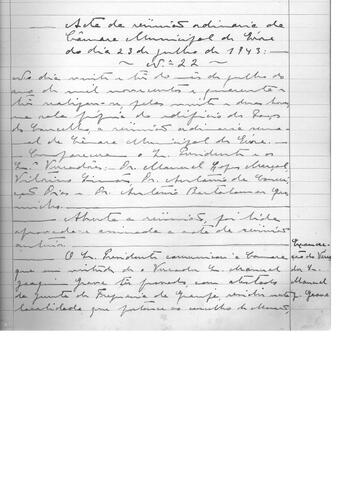 Acta da reunião ordinaria da
Câmara Municipal de Évora
do dia 23 de julho de 1943:—
~ N.º 22 ~
No dia vinte e três do mês de julho do
ano de mil novecentos e quarenta e
três realizou-se, pelas vinte e duas horas
na sala própria do edifício dos Paços
do Concelho, a reunião ordinaria sema-
nal da Câmara Municipal de Évora.
Compareceram o Sr. Presidente e os
Srs. Vereadores: Dr. Manuel Lopes Marçal
Dr. António da Concei-
ção Dias e Dr. António Bartolomeu Gro-
minho.
Aberta a reunião, foi lida
aprovada e assinada a acta da reunião
anterior.
O Sr. Presidente comunicou à Câmara
que em virtude de o Vereador Sr. Manuel
Joaquim Grave ter provado com atestado
da Junta de Freguesia de Granja, residir nesta
localidade que pertence ao concelho de Mourão,
ção do Verea
dor Sr.
Manuel
J. Grave